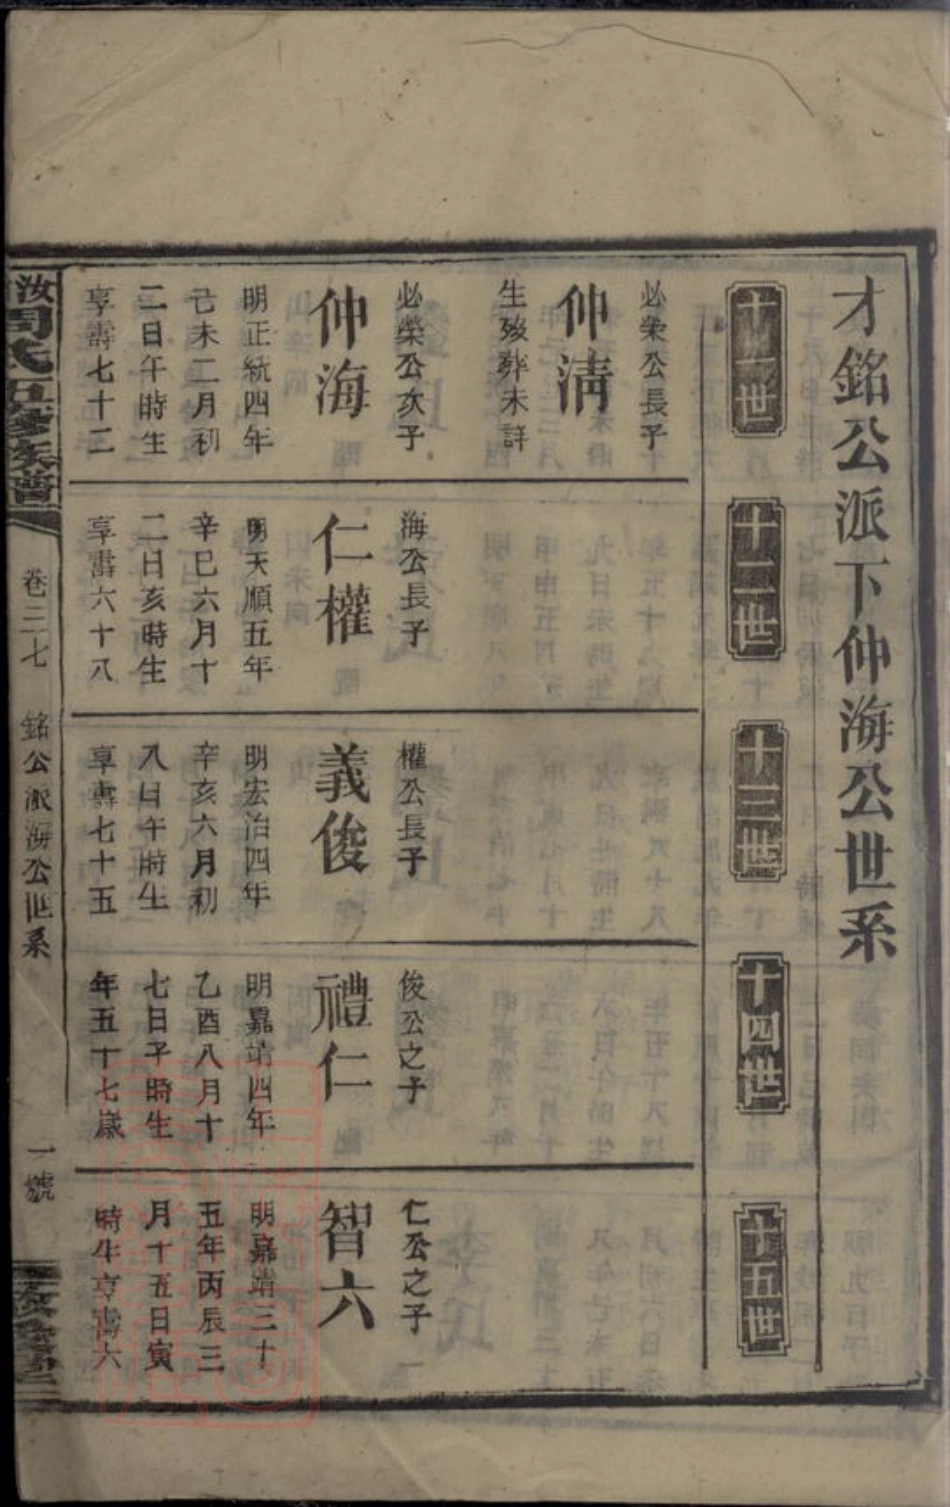 才銘公派下仲海公世系
十一世
十二世
十三世
十四世
十五世
必榮公長子
仲清
生殁葬未詳
必榮公次子
仲海
明正統四年
己未二月初
二日午時生
享壽七十二
海公長子
仁權
明天順五年
辛巳六月十
二日亥時生
享壽六十八
權公長子
義俊
明宏治四年
辛亥六月初
八日午時生
享壽七十五
俊公之子
禮仁
明嘉靖四年
乙酉八月十
七日子時生
年五十七歲
仁公之子
智六
明嘉靖三十
五年丙辰三
月十五日寅
時生享壽六
汝周氏五修族譜
卷三七
銘公派海公世系
一號